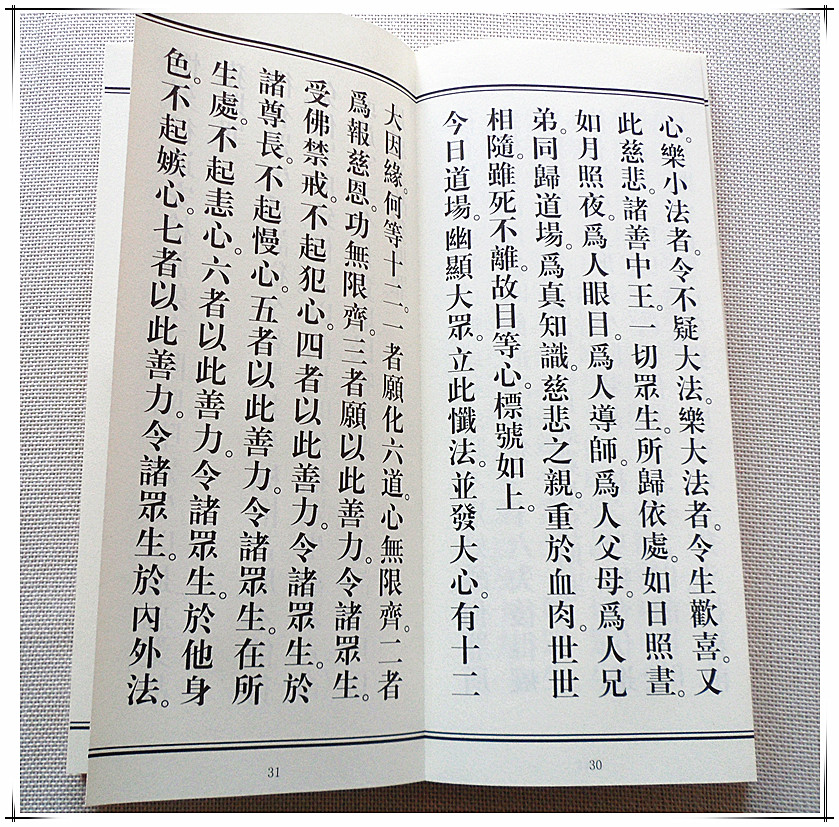 心。樂小法者。令不疑大法。樂大法者。令生歡喜。又
此慈悲。諸善中王。一切眾生。所歸依處。如日照晝。
如月照夜。爲人眼目。爲人導師。爲人父母。爲人兄
弟。同歸道場。爲真知識。慈悲之親。重於血肉。世世
相隨。雖死不離。故目等心。標號如上。
今日道場。幽顯大眾。立此懺法。並發大心。有十二
30
大因緣。何等十二。一者願化六道。心無限齊。二者
爲報慈恩。功無限齊。三者願以此善力。令諸眾生。
受佛禁戒。不起犯心。四者以此善力。令諸眾生。於
諸尊長。不起慢心。五者以此善力。令諸眾生。在所
生處。不起恚心。六者以此善力。令諸眾生。於他身
色。不起嫉心。七者以此善力。令諸眾生。於內外法。
31